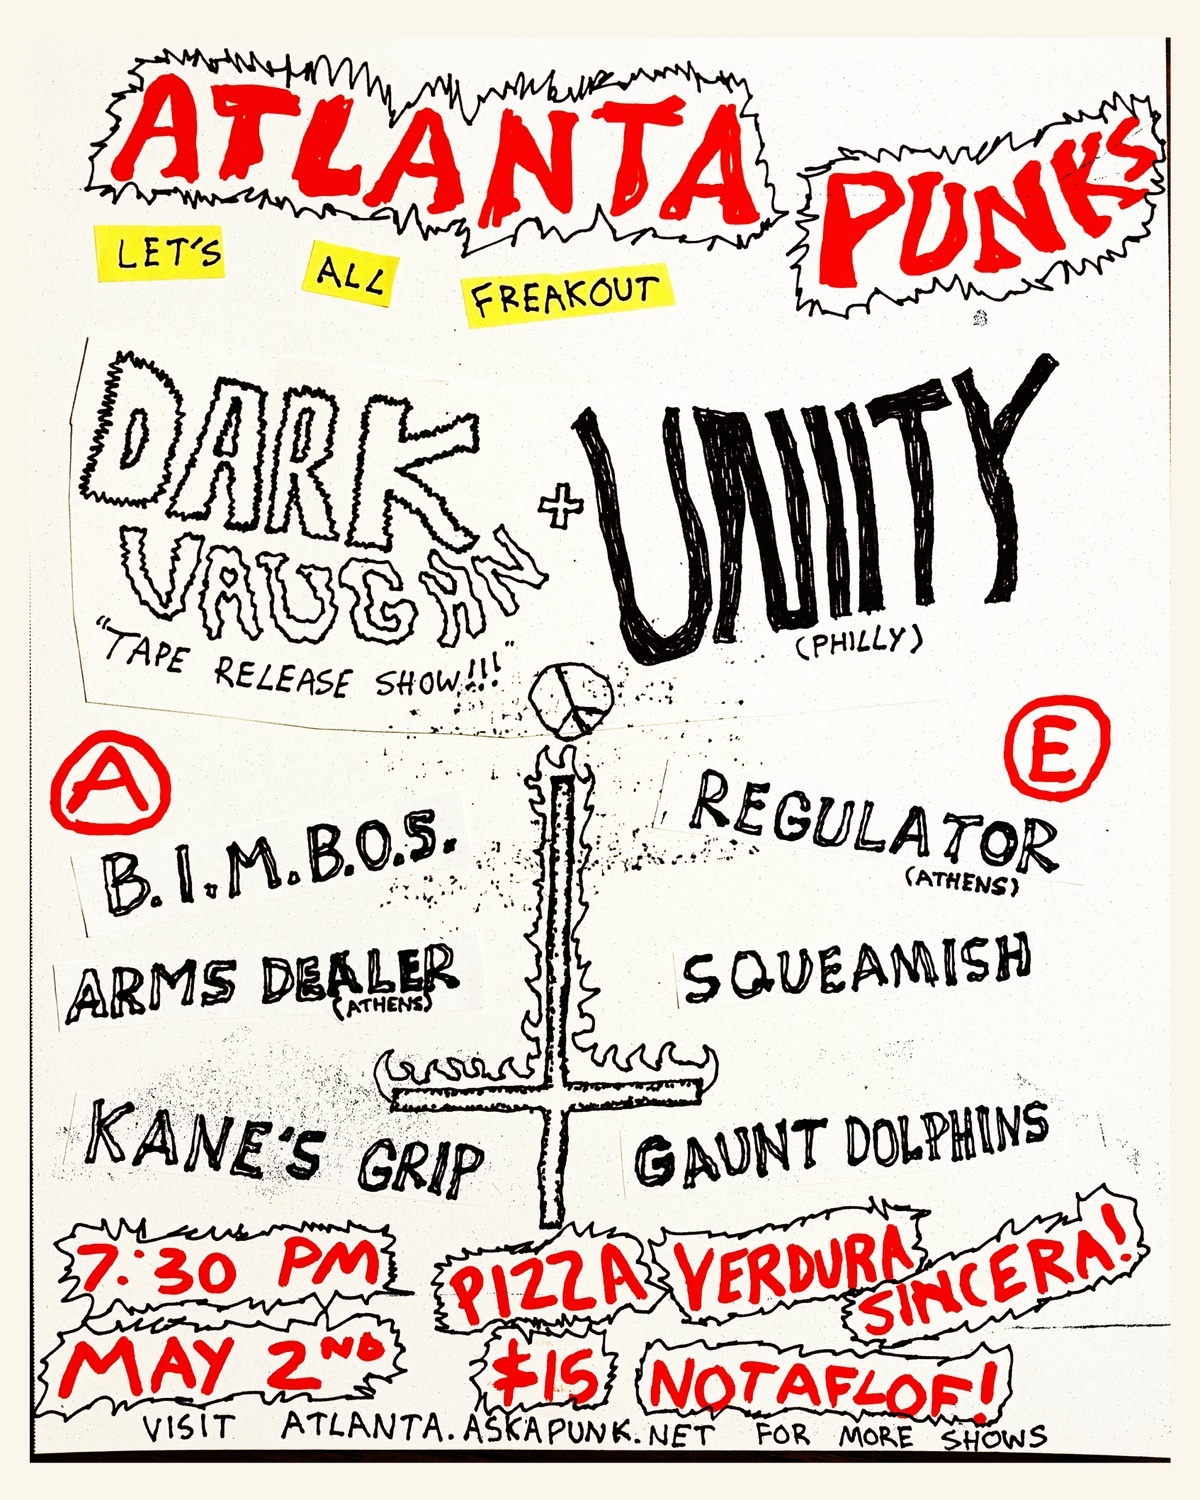 ATLANTA
PUNKS
LET'S ALL FREAKOUT
DARK VAUGHN
"TAPE RELEASE SHOW!!!"
+
UNITY
(PHILLY)
A
E
B.I.M.B.O.S.
REGULATOR
(ATHENS)
ARMS DEALER
(ATHENS)
SQUEAMISH
KANE'S GRIP
GAUNT DOLPHINS
7:30 PM
PIZZA VERDURA SINCERA!
MAY 2ND
$15
NOTAFLOF!
VISIT ATLANTA.ASKAPUNK.NET FOR MORE SHOWS